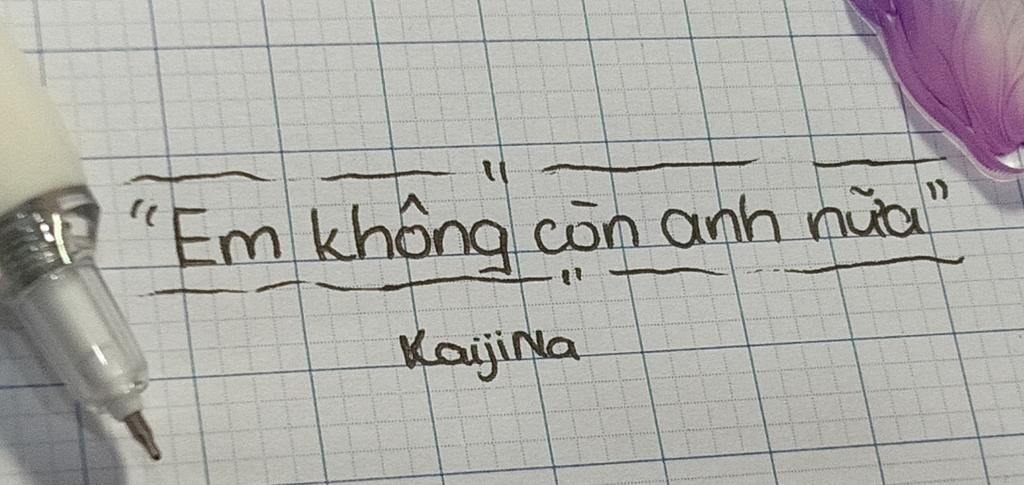 "Em không còn anh nữa"
KaijiNa